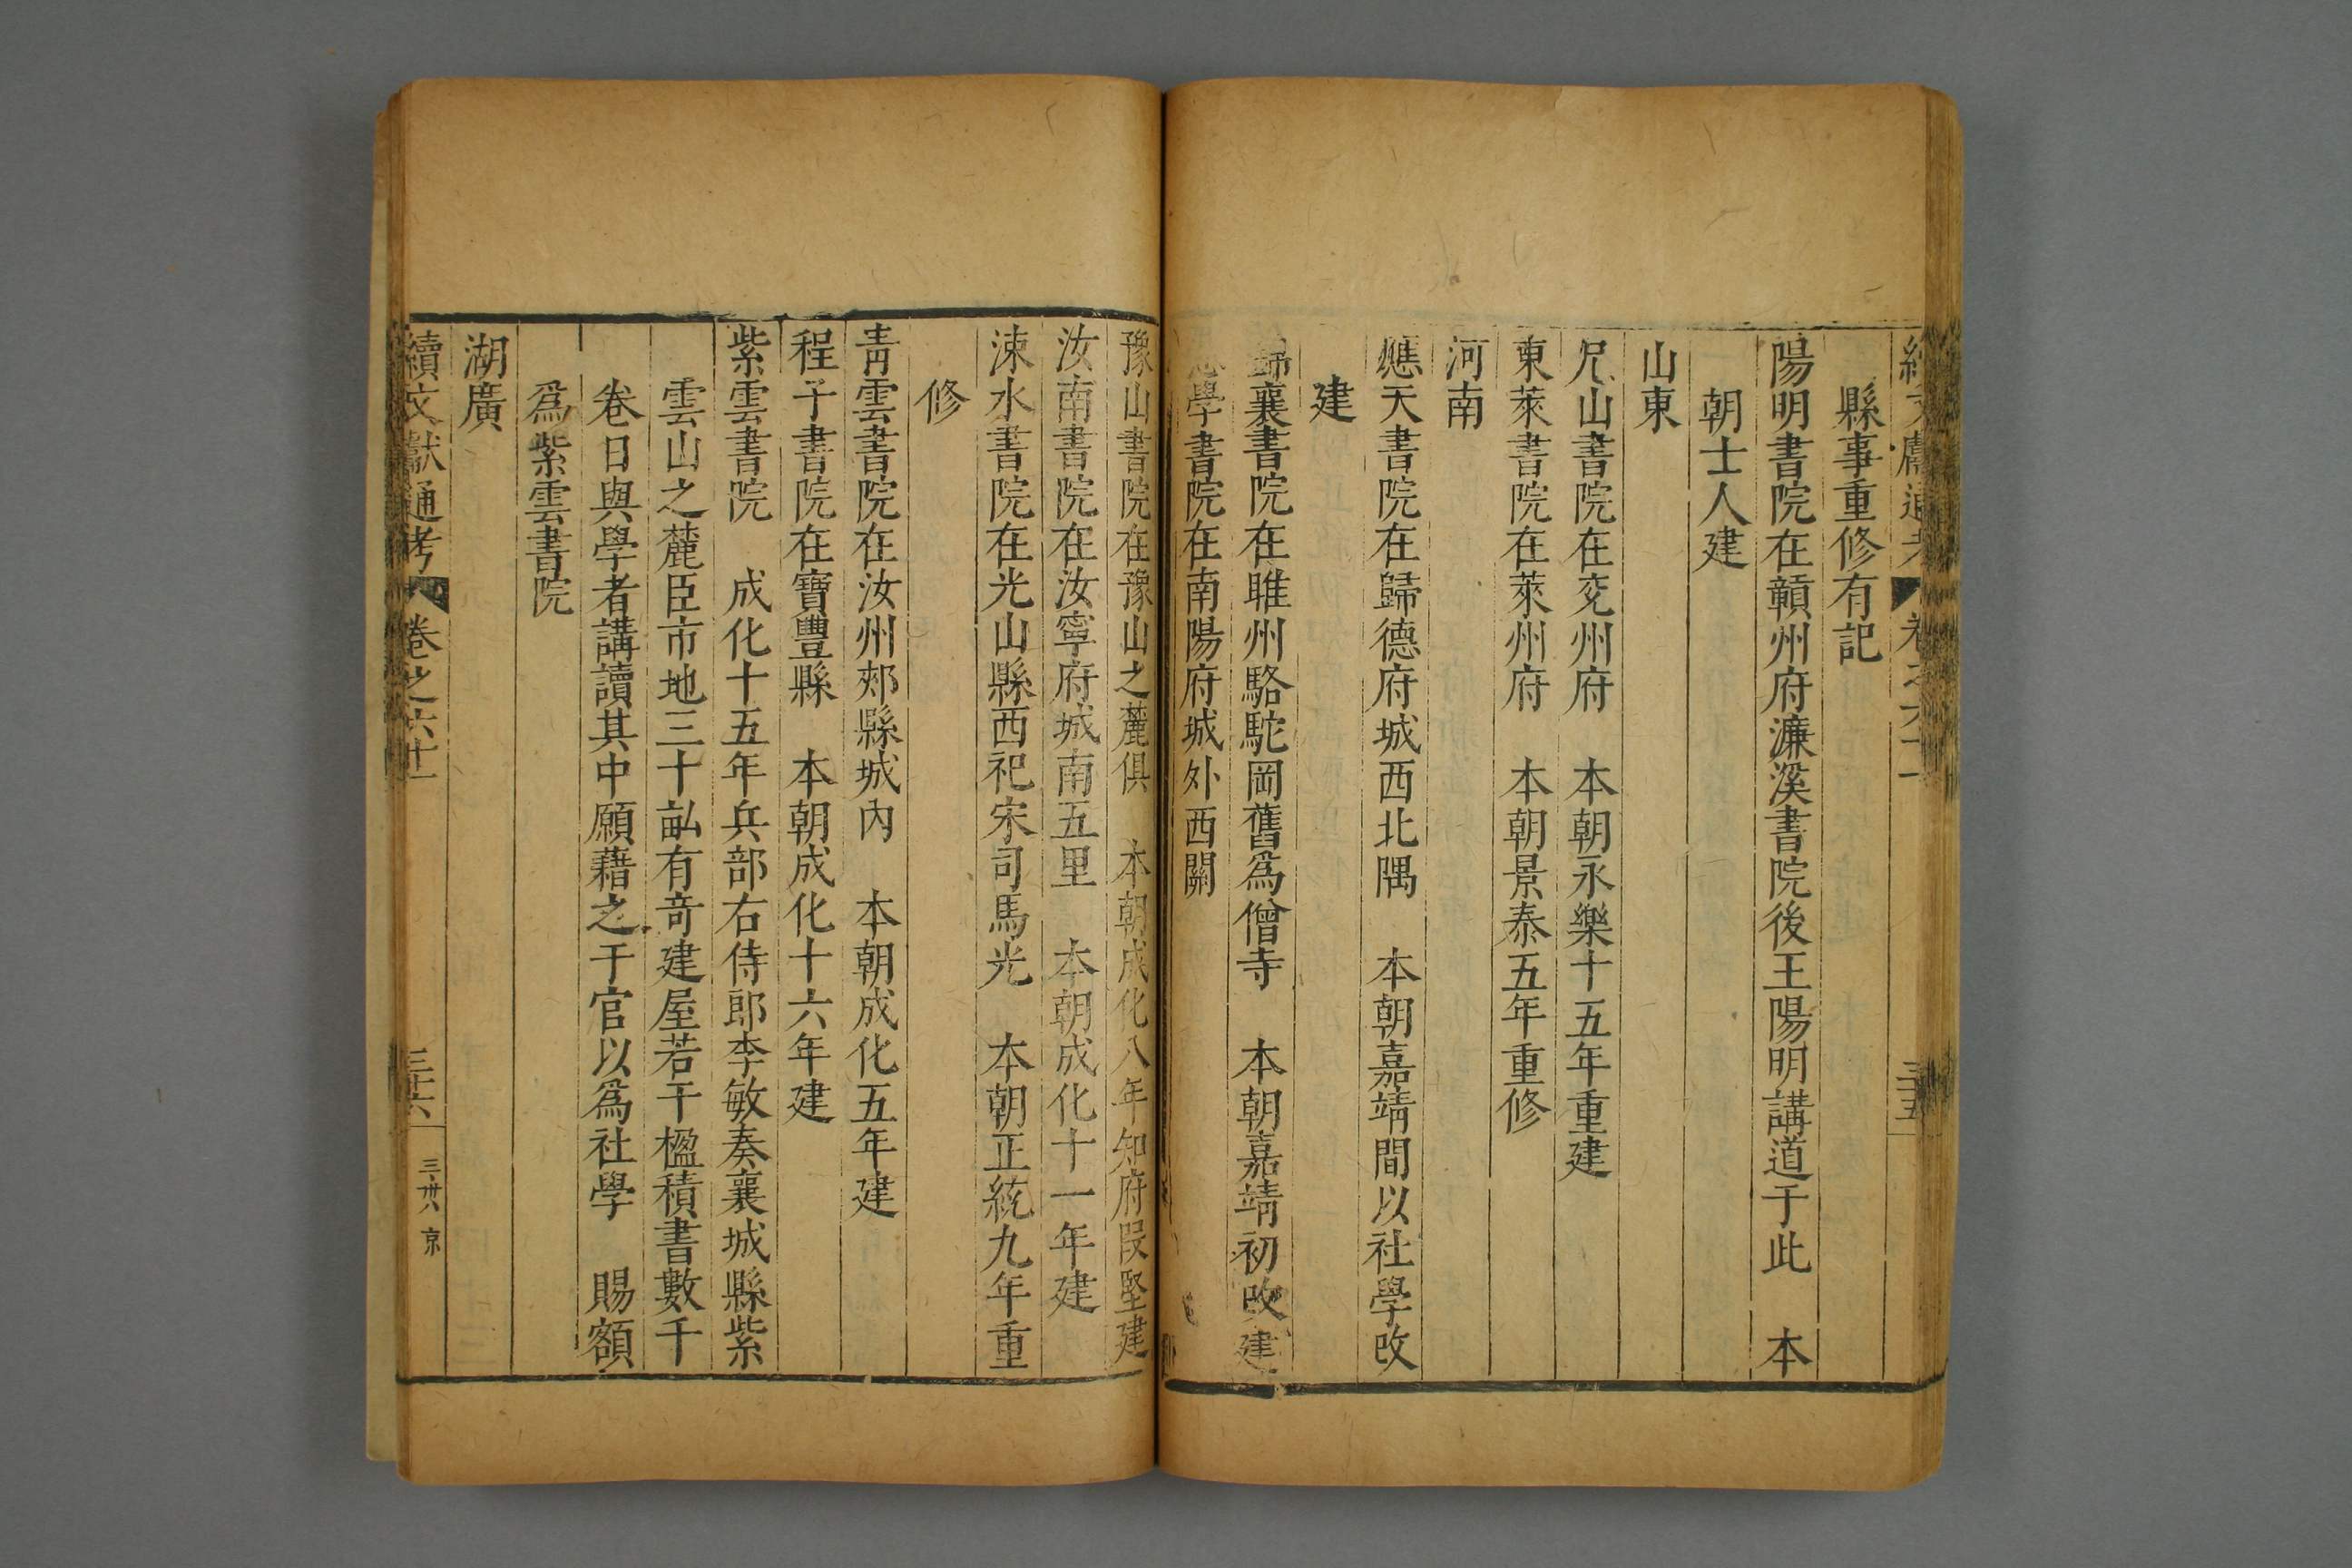 續文獻通考 卷之六十一 三十五
縣事重修有記
陽明書院在贛州府濂溪書院後王陽明講道于此 本
朝士人建
山東
尼山書院在兗州府 本朝永樂十五年重建
東萊書院在萊州府 本朝景泰五年重修
河南
應天書院在歸德府城西北隅 本朝嘉靖間以社學改
建
錦襄書院在睢州駱駝岡舊為僧寺 本朝嘉靖初改建
學書院在南陽府城外西關
豫山書院在豫山之麓俱 本朝成化八年知府段堅建
汝南書院在汝寧府城南五里 本朝成化十一年建
涑水書院在光山縣西祀宋司馬光 本朝正統九年重
修
青雲書院在汝州郟縣城內 本朝成化五年建
程子書院在寶豐縣 本朝成化十六年建
紫雲書院 成化十五年兵部右侍郎李敏奏襄城縣紫
雲山之麓臣市地三十畝有奇建屋若干楹積書數千
卷日與學者講讀其中願藉之于官以爲社學 賜額
爲紫雲書院
湖廣
續文獻通考 卷之六十一 三十六 三卅八 京